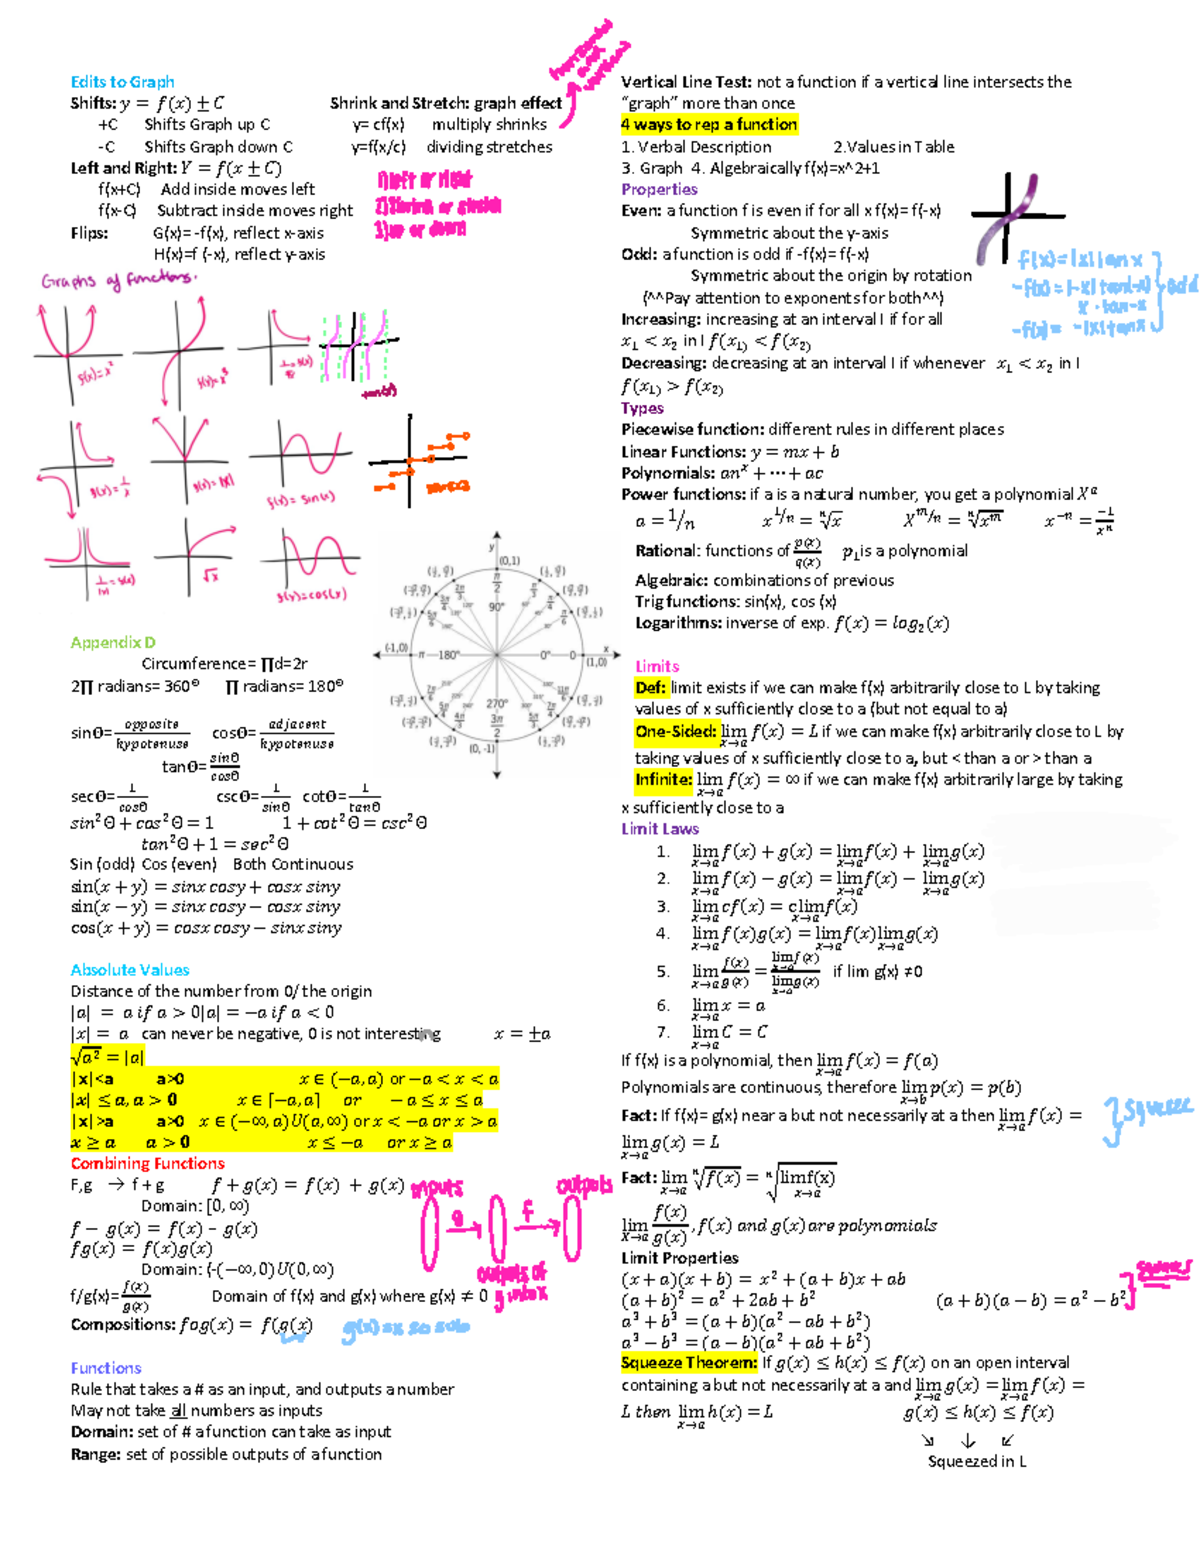 Edits to Graph
Shifts: y = f(x) ± C Shrink and Stretch: graph effect
+C Shifts Graph up C y= cf(x) multiply shrinks
-C Shifts Graph down C y=f(x/c) dividing stretches
Left and Right: Y = f(x ± C)
f(x+C) Add inside moves left
f(x-C) Subtract inside moves right
Flips: G(x)= -f(x), reflect x-axis
H(x)=f (-x), reflect y-axis
1) left or right
2) Shrink or stretch
3) up or down
Graphs of functions.
f(x)=x²
f(x)=x³
tan(x)
f(x)=1/x
f(x)=|x|
f(x)=sin(x)
√x
f(x)=cos(x)
y
(0,1)
π/2
90°
(-1,0) π 180° 0° 0 x
(1,0)
270°
3π/2
(0, -1)
Appendix D
Circumference= ∏d=2r
2∏ radians= 360° ∏ radians= 180°
sinΘ= opposite/hypotenuse cosΘ= adjacent/hypotenuse
tanΘ= sinΘ/cosΘ
secΘ= 1/cosΘ cscΘ= 1/sinΘ cotΘ= 1/tanΘ
sin²Θ + cos²Θ = 1 1 + cot²Θ = csc²Θ
tan²Θ + 1 = sec²Θ
Sin (odd) Cos (even) Both Continuous
sin(x + y) = sinx cosy + cosx siny
sin(x − y) = sinx cosy − cosx siny
cos(x + y) = cosx cosy − sinx siny
Absolute Values
Distance of the number from 0/ the origin
|a| = a if a > 0|a| = −a if a < 0
|x| = a can never be negative, 0 is not interesting x = ±a
√a² = |a|
|x|<a a>0 x ∈ (−a, a) or −a < x < a
|x| ≤ a, a > 0 x ∈ [−a, a] or − a ≤ x ≤ a
|x|>a a>0 x ∈ (−∞, a)U(a, ∞) or x < −a or x > a
x ≥ a a > 0 x ≤ −a or x ≥ a
Combining Functions
F,g → f + g f + g(x) = f(x) + g(x)
Domain: [0, ∞)
f − g(x) = f(x) – g(x)
fg(x) = f(x)g(x)
Domain: (-(−∞, 0) U(0, ∞)
f/g(x)= f(x)/g(x) Domain of f(x) and g(x) where g(x) ≠ 0
Compositions: fog(x) = f(g(x)
inputs g f outputs
outputs of
Functions
Rule that takes a # as an input, and outputs a number
May not take all numbers as inputs
Domain: set of # a function can take as input
Range: set of possible outputs of a function
Vertical Line Test: not a function if a vertical line intersects the
“graph” more than once
4 ways to rep a function
1. Verbal Description 2.Values in Table
3. Graph 4. Algebraically f(x)=x^2+1
Properties
Even: a function f is even if for all x f(x)= f(-x)
Symmetric about the y-axis
Odd: a function is odd if -f(x)= f(-x)
Symmetric about the origin by rotation
(^^Pay attention to exponents for both^^)
f(x)=|x|tanx
-f(x)=|-x|tan(-x)
x · tan-x
-f(x)= -|x|tanx
odd
Increasing: increasing at an interval I if for all
x₁ < x₂ in I f(x₁) < f(x₂)
Decreasing: decreasing at an interval I if whenever x₁ < x₂ in I
f(x₁) > f(x₂)
Types
Piecewise function: different rules in different places
Linear Functions: y = mx + b
Polynomials: anˣ + ⋯ + ac
Power functions: if a is a natural number, you get a polynomial Xᵃ
a = 1/n x^1/n = ⁿ√x X^m/n = ⁿ√xᵐ x⁻ⁿ = −1/xⁿ
Rational: functions of p(x)/q(x) p₁is a polynomial
Algebraic: combinations of previous
Trig functions: sin(x), cos (x)
Logarithms: inverse of exp. f(x) = log₂(x)
Limits
Def: limit exists if we can make f(x) arbitrarily close to L by taking
values of x sufficiently close to a (but not equal to a)
One-Sided: lim x→a f(x) = L if we can make f(x) arbitrarily close to L by
taking values of x sufficiently close to a, but < than a or > than a
Infinite: lim x→a f(x) = ∞ if we can make f(x) arbitrarily large by taking
x sufficiently close to a
Limit Laws
1. lim x→a f(x) + g(x) = lim x→a f(x) + lim x→a g(x)
2. lim x→a f(x) − g(x) = lim x→a f(x) − lim x→a g(x)
3. lim x→a cf(x) = c lim x→a f(x)
4. lim x→a f(x)g(x) = lim x→a f(x) lim x→a g(x)
5. lim x→a f(x)/g(x) = lim x→a f(x)/lim x→a g(x) if lim g(x) ≠0
6. lim x→a x = a
7. lim x→a C = C
If f(x) is a polynomial, then lim x→a f(x) = f(a)
Polynomials are continuous, therefore lim x→b p(x) = p(b)
Fact: If f(x)= g(x) near a but not necessarily at a then lim x→a f(x) =
lim x→a g(x) = L
squeeze
Fact: lim x→a ⁿ√f(x) = ⁿ√lim x→a f(x)
lim x→a f(x)/g(x), f(x) and g(x)are polynomials
Limit Properties
(x + a)(x + b) = x² + (a + b)x + ab
(a + b)² = a² + 2ab + b² (a + b)(a − b) = a² − b²
squares
a³ + b³ = (a + b)(a² − ab + b²)
a³ − b³ = (a − b)(a² + ab + b²)
Squeeze Theorem: If g(x) ≤ h(x) ≤ f(x) on an open interval
containing a but not necessarily at a and lim x→a g(x) = lim x→a f(x) =
L then lim x→a h(x) = L g(x) ≤ h(x) ≤ f(x)
↘ ↓ ↙
Squeezed in L